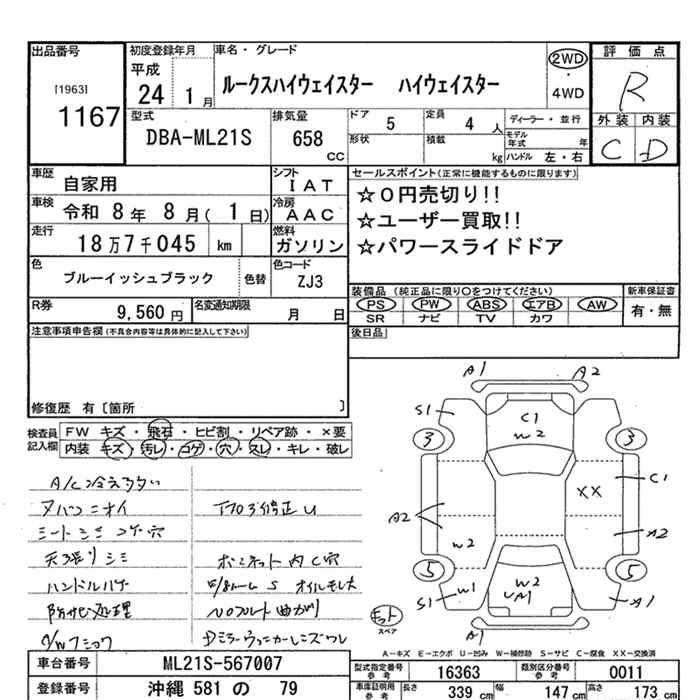 出品番号
[1963]
1167
初度登録年月
平成
24 1月
車名・グレード
ルークスハイウェイスター ハイウェイスター
2WD
・
4WD
評価点
R
外装 内装
C D
型式
DBA-ML21S
排気量
658
CC
ドア
5
定員
4 人
形状
積載
kg
ディーラー・並行
モデル年式 年
ハンドル 左・右
車歴
自家用
シフト
IAT
車検
令和 8年 8月( 1日)
冷房
AAC
走行
18万7千045 km
燃料
ガソリン
色
ブルーイッシュブラック
色替
色コード
ZJ3
R券
9,560 円
名変通知期限
月 日
セールスポイント(正常に機能するものに限ります)
☆0円売切り!!
☆ユーザー買取!!
☆パワースライドドア
装備品 (純正品に限り○をつけてください)
PS PW ABS エアB AW
SR ナビ TV カワ
新車保証書
有・無
後日品
注意事項申告欄(不具合内容等は具体的に記入して下さい)
修復歴 有〔箇所 〕
検査員記入欄
FW キズ・飛石・ヒビ割・リペア跡・×要
内装 キズ・汚レ・コゲ・穴・スレ・キレ・破レ
シートシミ コゲ 穴
天張りシミ
防サビ処理
ボンネット内C穴
A1 A2
S1
C1
W2
3 3
C1
XX
A2
A2
W2
5 5
W2
W1
S1
A1
A1
スペア
A-キズ E-エクボ U-凹み W-補修跡 S-サビ C-腐食 XX-交換済
車台番号
ML21S-567007
登録番号
沖縄 581 の 79
型式指定番号
参考
16363
類別区分番号
参考
0011
車庫証明用
参考
長さ
339 cm
幅
147 cm
高さ
173 cm